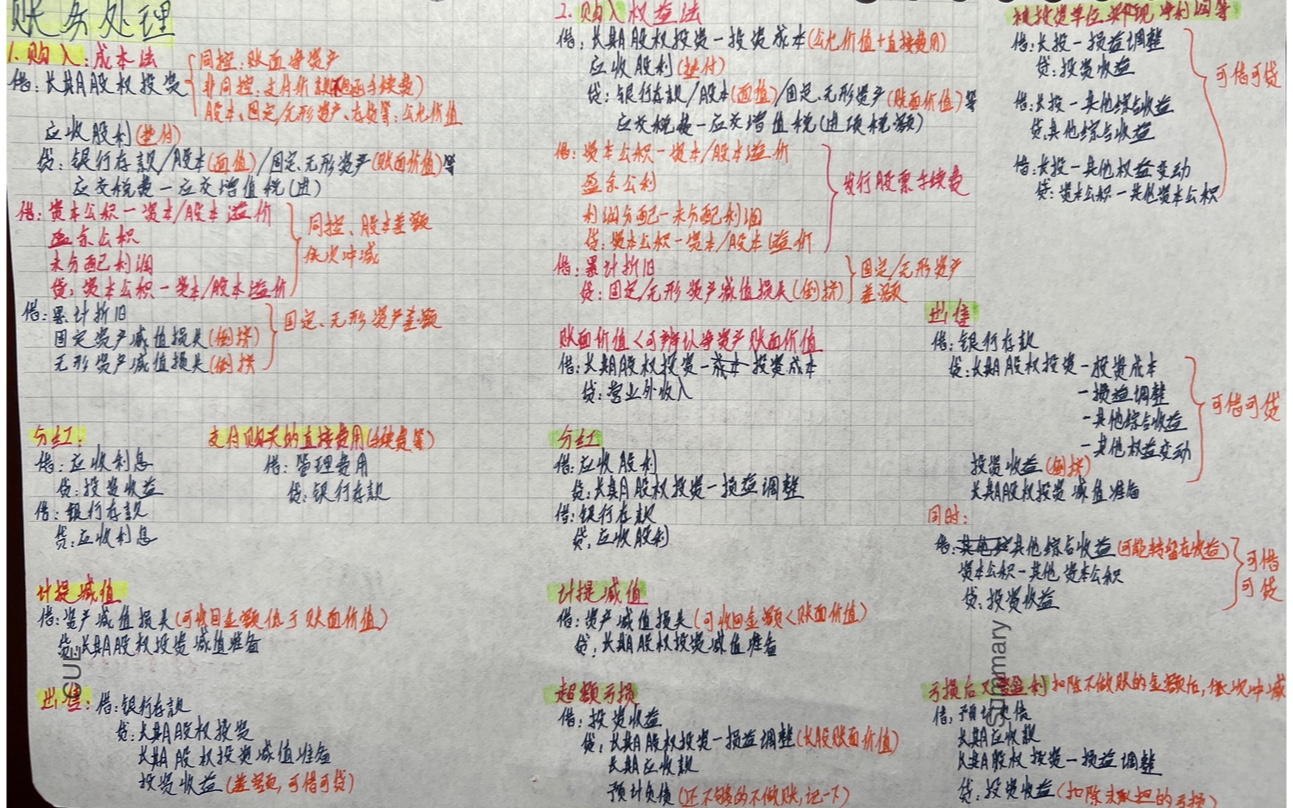 账务处理
1.购入:成本法
借:长期股权投资
同控:账面净资产
非同控:支付价款(不包括手续费)
股本、固定/无形资产、存货等:公允价值
应收股利(垫付)
贷:银行存款/股本(面值)/固定、无形资产(账面价值)等
应交税费一应交增值税(进)
借:资本公积一资本/股本溢价
盈余公积
未分配利润
贷:资本公积一资本/股本溢价
同控、股本差额
依次冲减
借:累计折旧
固定资产减值损失(倒挤)
无形资产减值损失(倒挤)
固定、无形资产差额
分红:
借:应收利息
贷:投资收益
借:银行存款
贷:应收利息
支付购买的直接费用(手续费等)
借:管理费用
贷:银行存款
计提减值
借:资产减值损失(可收回金额低于账面价值)
贷:长期股权投资减值准备
出售:借:银行存款
贷:长期股权投资
长期股权投资减值准备
投资收益(差额,可借可贷)
2.购入权益法
借:长期股权投资一投资成本(公允价值+直接费用)
应收股利(垫付)
贷:银行存款/股本(面值)/固定、无形资产(账面价值)等
应交税费一应交增值税(进项税额)
借:资本公积一资本/股本溢价
盈余公利
利润分配一未分配利润
贷:资本公积一资本/股本溢价
发行股票手续费
借:累计折旧
贷:固定/无形资产减值损失(倒挤)
固定/无形资产
差额
账面价值<可辨认净资产账面价值
借:长期股权投资一投资成本
贷:营业外收入
分红
借:应收股利
贷:长期股权投资一损益调整
借:银行存款
贷:应收股利
计提减值
借:资产减值损失(可收回金额<账面价值)
贷:长期股权投资减值准备
超额亏损
借:投资收益
贷:长期股权投资一损益调整(长股账面价值)
长期应收款
预计负债(还不够的不做账,记一下)
被投资单位实现净利润等
借:长投一损益调整
贷:投资收益
借:长投一其他综合收益
贷:其他综合收益
借:长投一其他权益变动
贷:资本公积一其他资本公积
可借可贷
出售
借:银行存款
贷:长期股权投资一投资成本
-损益调整
-其他综合收益
-其他权益变动
可借可贷
投资收益(倒挤)
长期股权投资减值准备
同时:
借:其他综合收益(可能转留存收益)
资本公积一其他资本公积
贷:投资收益
可借
可贷
亏损后又盈利 扣除不做账的金额后,依次冲减
借:预计负债
长期应收款
长期股权投资一损益调整
贷:投资收益(扣除未承担的亏损)
GUE
Summary